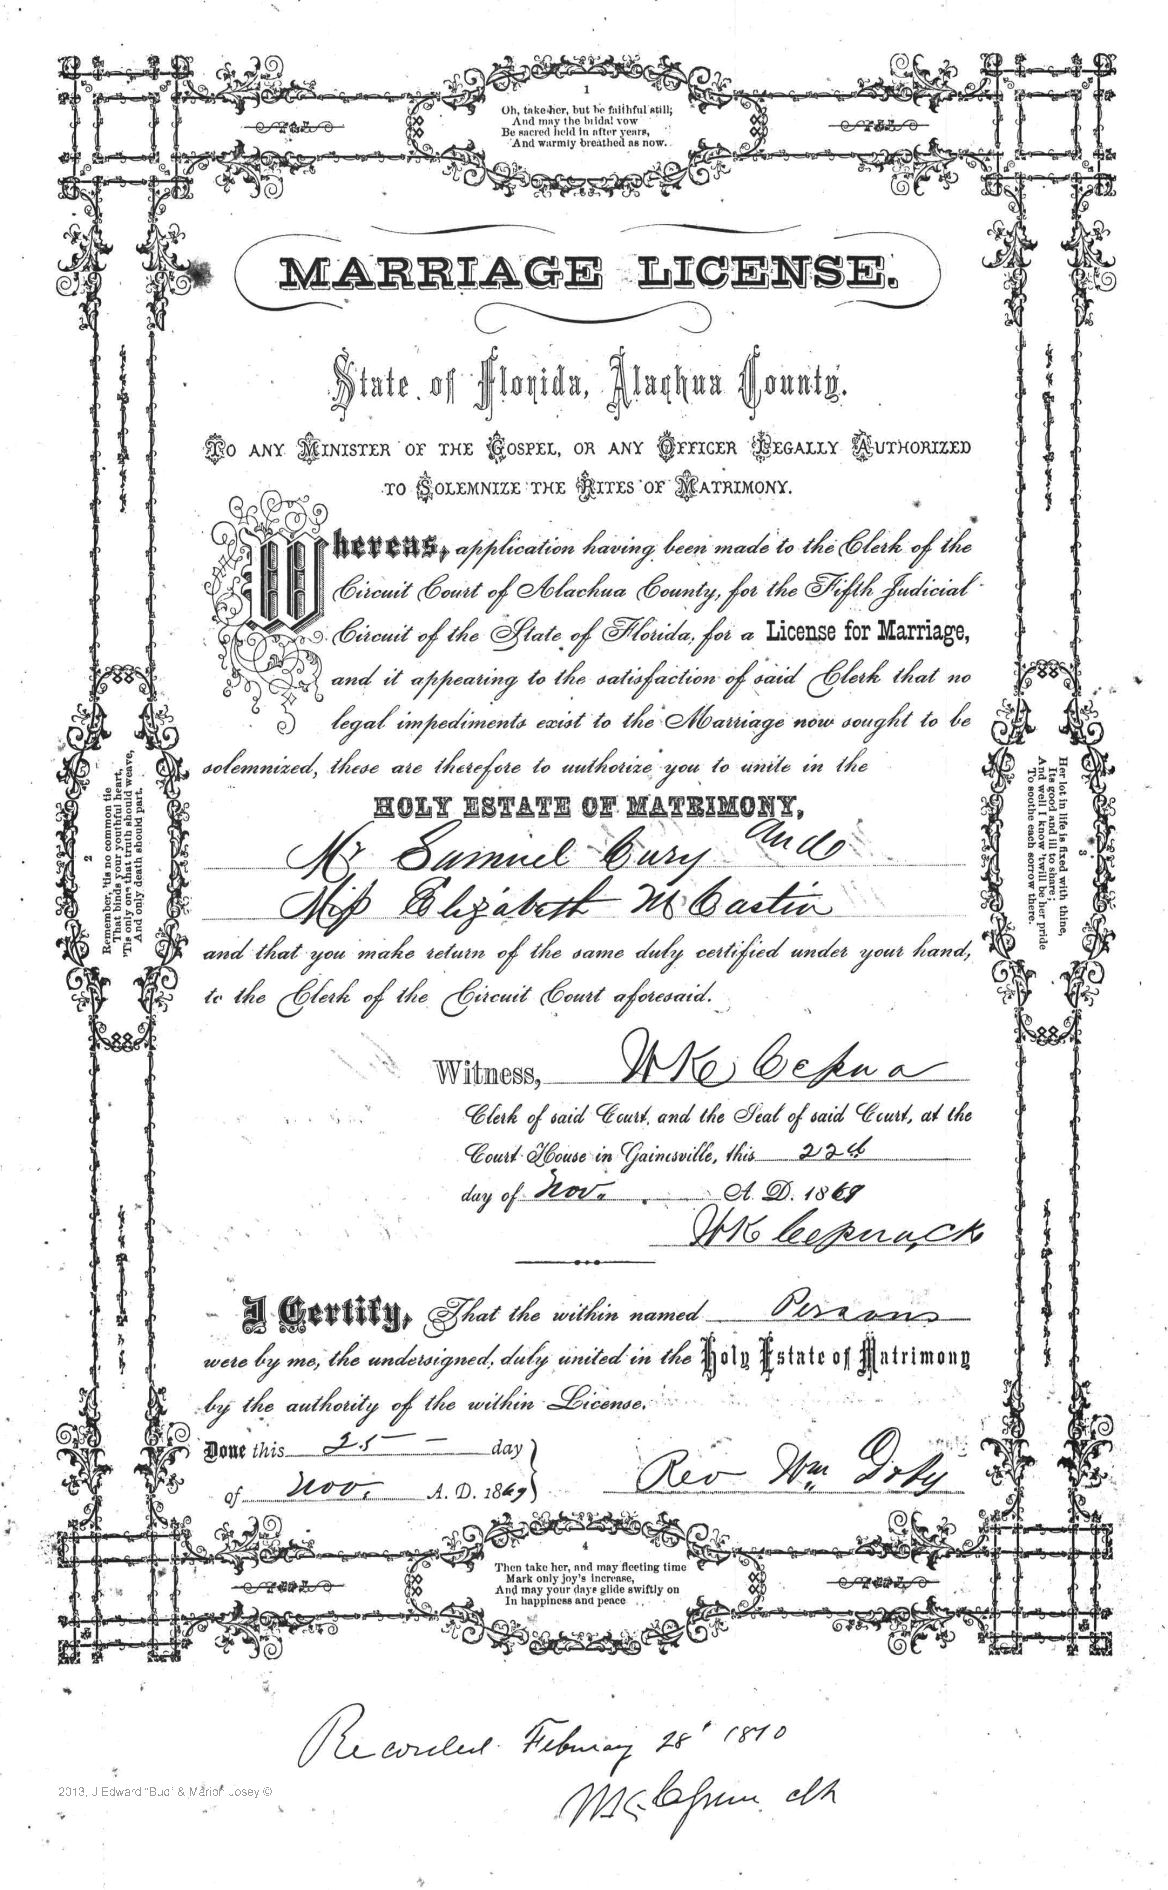 1
Oh, take her, but be faithful still;
And may the bridal vow
Be sacred held in after years,
And warmly breathed as now.
MARRIAGE LICENSE.
State of Florida, Alachua County.
TO ANY MINISTER OF THE GOSPEL, OR ANY OFFICER LEGALLY AUTHORIZED
TO SOLEMNIZE THE RITES OF MATRIMONY.
Whereas, application having been made to the Clerk of the
Circuit Court of Alachua County, for the Fifth Judicial
Circuit of the State of Florida, for a License for Marriage,
and it appearing to the satisfaction of said Clerk that no
legal impediments exist to the Marriage now sought to be
solemnized, these are therefore to authorize you to unite in the
HOLY ESTATE OF MATRIMONY,
Mr Samuel Cury and
Miss Elizabeth McCastin
and that you make return of the same duly certified under your hand,
to the Clerk of the Circuit Court aforesaid.
Witness,
Clerk of said Court, and the Seal of said Court, at the
Court House in Gainesville, this 22d
day of Nov. A. D. 1869
I Certify, That the within named Persons
were by me, the undersigned, duly united in the Holy Estate of Matrimony
by the authority of the within License.
Done this 25 day
of Nov. A. D. 1869
Rev Wm Doty
2
Remember, 'tis no common tie
That binds your youthful heart,
'Tis only one that truth should weave,
And only death should part.
3
Her lot in life is fixed with thine,
Its good and ill to share;
And well I know 'twill be her pride
To soothe each sorrow there.
4
Then take her, and may fleeting time
Mark only joy's increase,
And may your days glide swiftly on
In happiness and peace
Recorded February 28" 1870
2013, J Edward "Bud" & Marion Josey ©